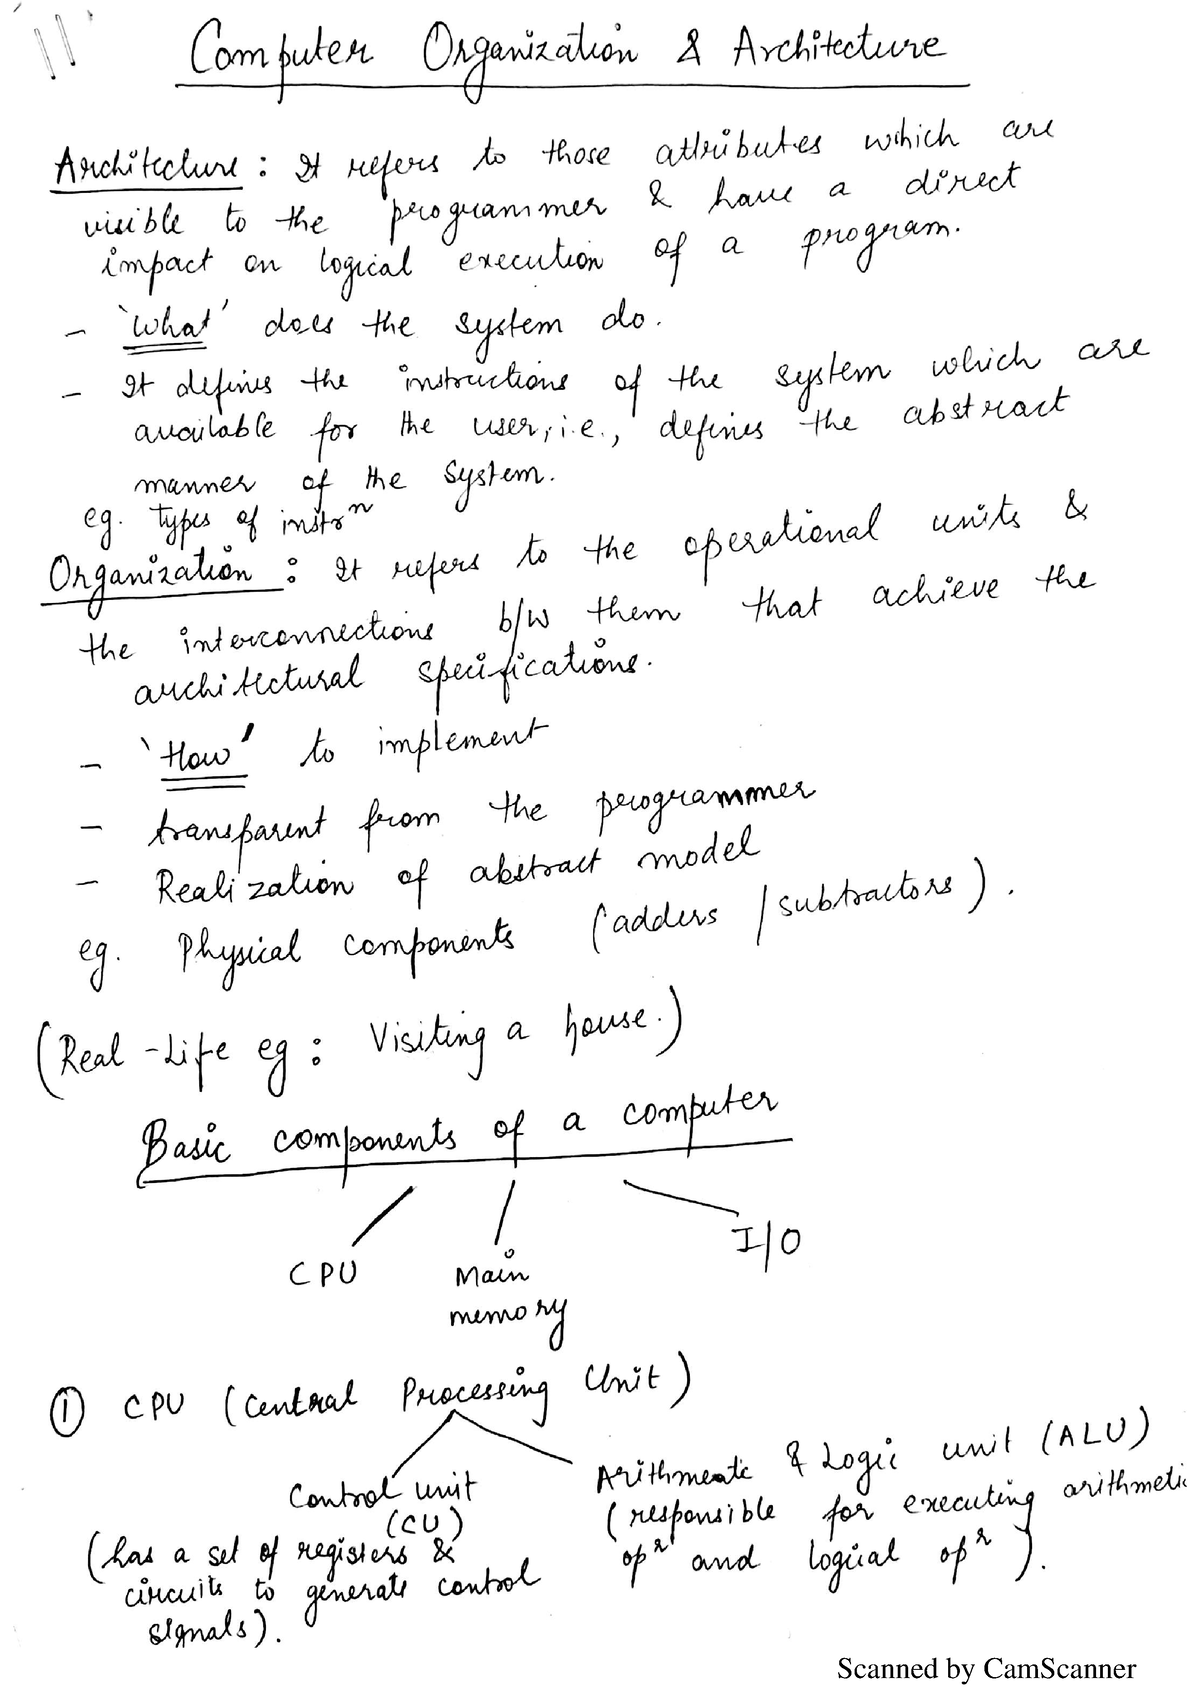 Computer Organization & Architecture
Architecture : It refers to those attributes which are
visible to the programmer & have a direct
impact on logical execution of a program.
- 'What' does the system do.
- It defines the instructions of the system which are
available for the user, i.e., defines the abstract
manner of the system.
eg. Types of instrⁿ
Organization : It refers to the operational units &
the interconnections b/w them that achieve the
architectural specifications.
- 'How' to implement
- transparent from the programmer
- Realization of abstract model
eg. Physical components (adders / subtractors).
(Real-Life eg : Visiting a house.)
Basic components of a computer
CPU
Main
memory
I/O
① CPU (Central Processing Unit)
Control unit
(CU)
(has a set of registers &
circuits to generate control
signals).
Arithmeatc & Logic unit (ALU)
(responsible for executing arithmetic
opʳ and logical opʳ).
Scanned by CamScanner